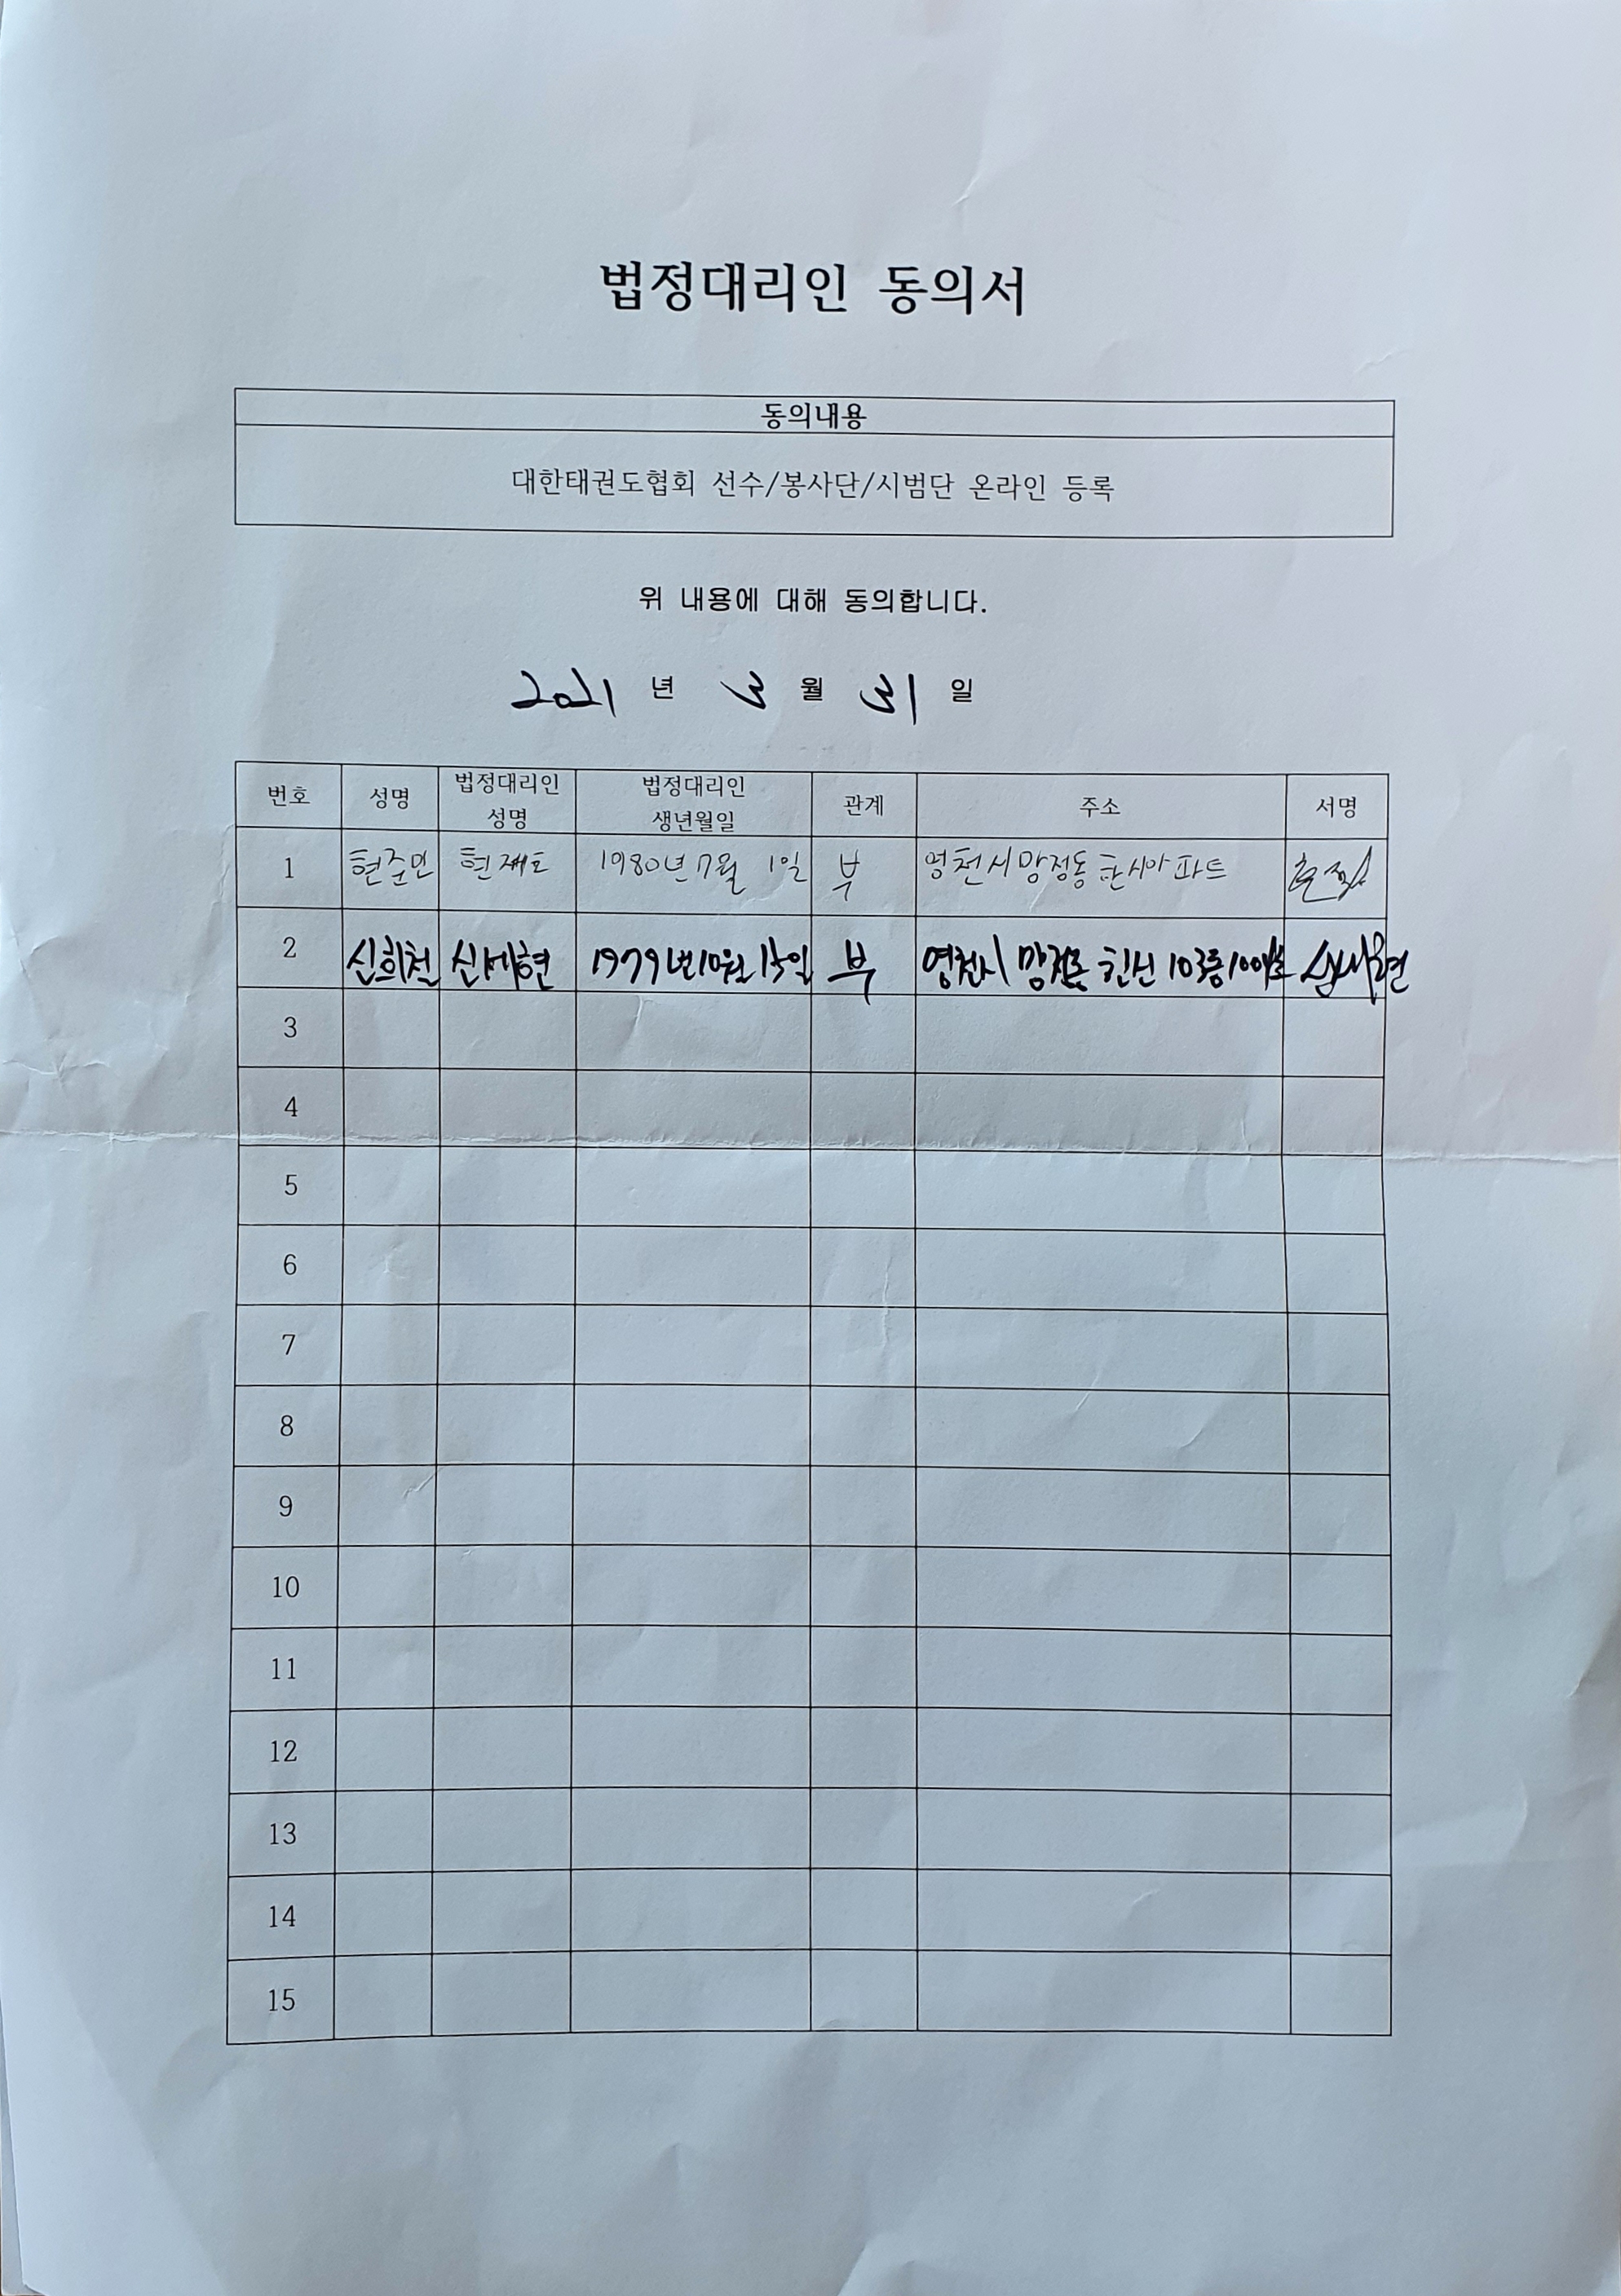 법정대리인 동의서
동의내용
대한태권도협회 선수/봉사단/시범단 온라인 등록
위 내용에 대해 동의합니다.
2021 년 3 월 31 일
번호 성명 법정대리인 성명 법정대리인 생년월일 관계 주소 서명
1 현준민 현재도 1980년 7월 1일 부 영천시 망정동 한시아파트
2 신희철 신세현 1979년 10월 15일 부 영천시 망정동 한신 103동
3
4
5
6
7
8
9
10
11
12
13
14
15